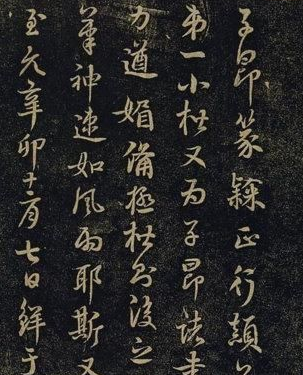 子昂篆隸正行顛草
第一小楷又为子昂諸書
力遒媚備極楷則後之
筆神速如風雨耶斯又
至大辛卯十一月七日鮮于